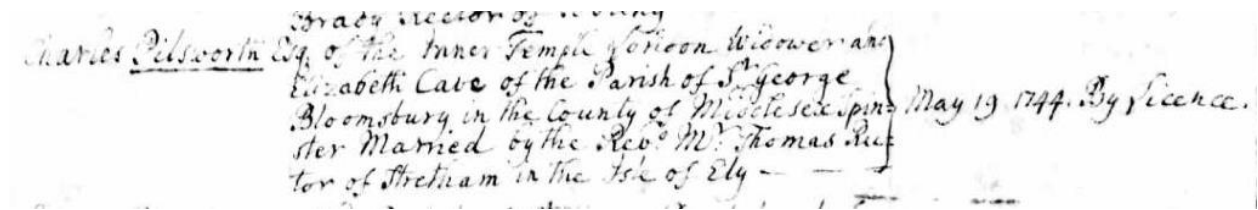 Brady Rector of
Charles Pilsworth Esq. of the Inner Temple London Widower and
Elizabeth Cave of the Parish of St. George
Bloomsbury in the County of Middlesex Spin=
ster Married by the Revd. Mr. Thomas Rec=
tor of Stretham in the Isle of Ely — — —
May 19 1744. By Licence.